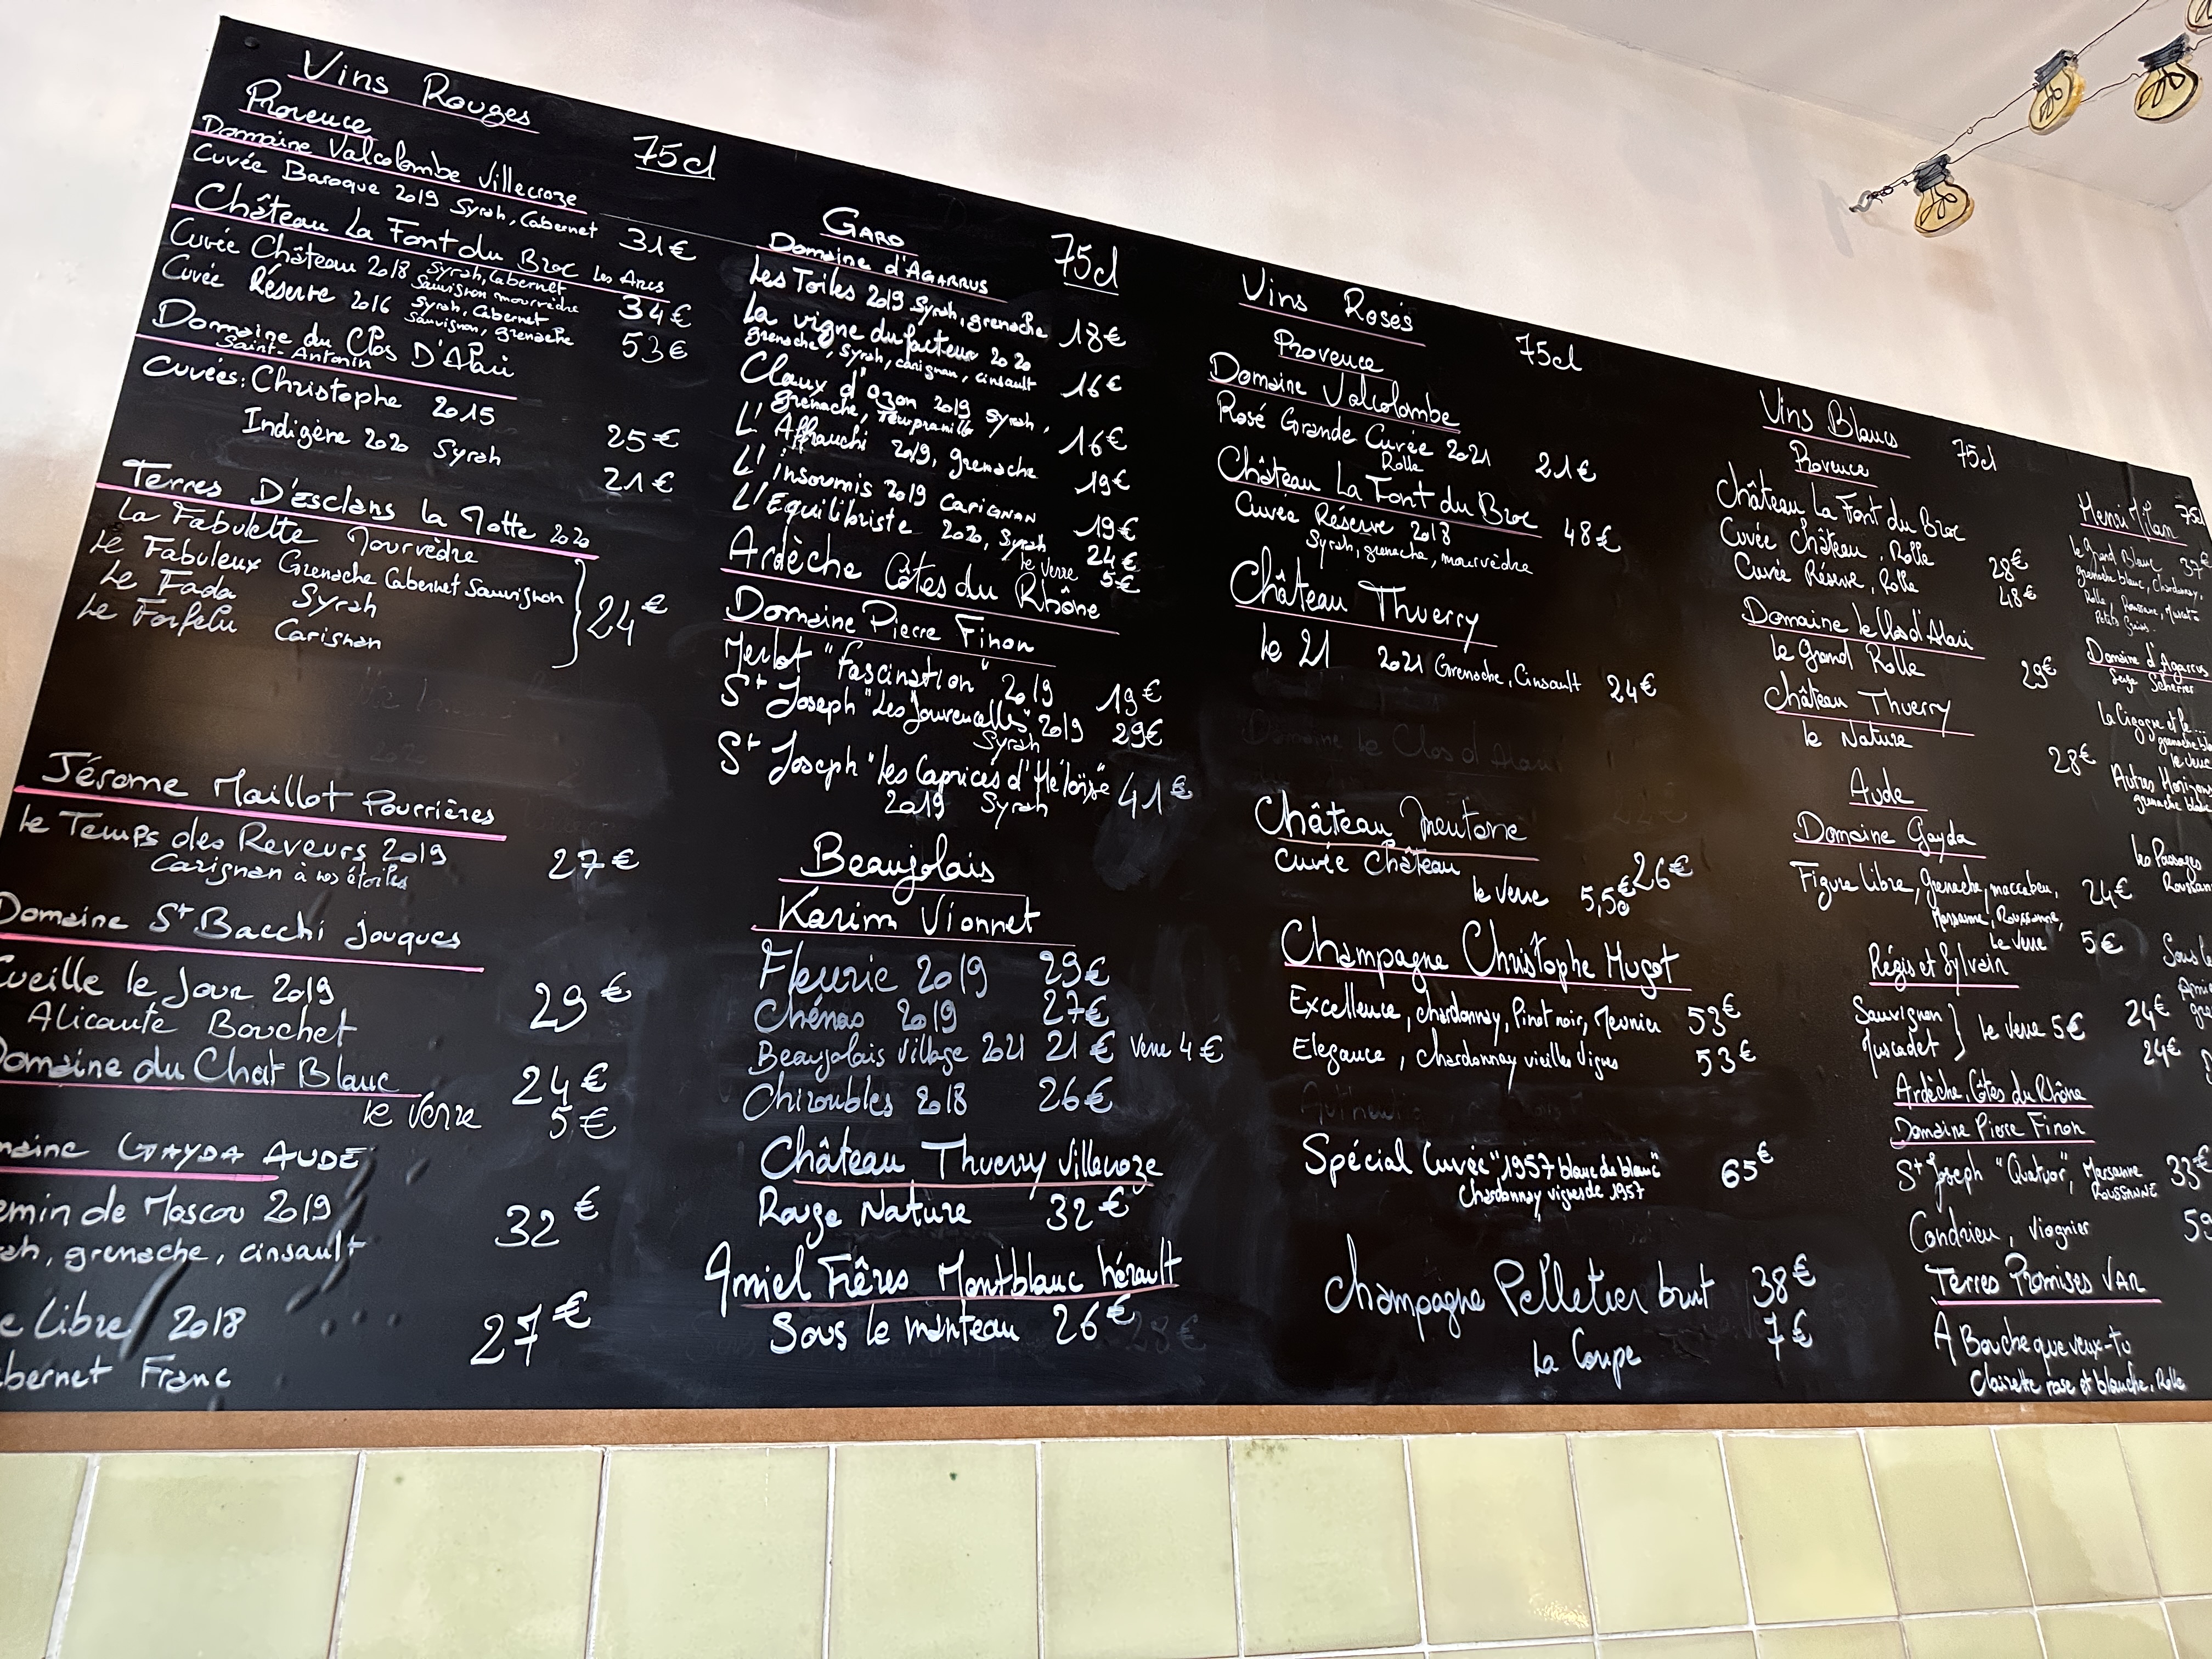 Vins Rouges
75cl
Provence
Domaine Valcolombe Villecroze
Cuvée Baroque 2019 Syrah, Cabernet 31€
Château La Font du Broc Les Arcs
Cuvée Château 2018 Syrah, Cabernet
Sauvignon mourvèdre 34€
Cuvée Réserve 2016 Syrah, Cabernet
Sauvignon, grenache 53€
Domaine du Clos D'Alari
Saint-Antonin
Cuvées: Christophe 2015 25€
Indigène 2020 Syrah 21€
Terres D'Esclans La Motte 2020
La Fabulette Mourvèdre
Le Fabuleux Grenache Cabernet Sauvignon
Le Fada Syrah
Le Farfelu Carignan
24€
Jérome Maillot Pourrières
Le Temps des Reveurs 2019
Carignan à nos étoiles 27€
Domaine St Bacchi Jouques
Cueille le Jour 2019
Alicante Bouchet 29€
Domaine du Chat Blanc 24€
le verre 5€
maine GAYDA AUDE
emin de Moscou 2019
ah, grenache, cinsault 32€
e Libre 2018
abernet Franc 27€
GARD
75cl
Domaine d'AGARRUS
Les Toiles 2019 Syrah, grenache 18€
La vigne du facteur 2020
grenache, Syrah, carignan, cinsault 16€
Claux d'Ozon 2019 Syrah,
grenache, Tempranillo 16€
L'Affranchi 2019, grenache 19€
L'insoumis 2019 CARIGNAN 19€
L'Equilibriste 2020, Syrah 24€
le verre 5€
Ardèche Côtes du Rhône
Domaine Pierre Finon
Merlot "Fascination" 2019 19€
St Joseph "Les Jouvencelles" 2019 29€
Syrah
St Joseph "Les Caprices d'Héloïse" 41€
2019 Syrah
Beaujolais
Karim Vionnet
Fleurie 2019 29€
Chénas 2019 27€
Beaujolais Village 2021 21€ Verre 4€
Chiroubles 2018 26€
Château Thuerry Villecroze
Rouge Nature 32€
Amiel Frêres Montblanc hérault
Sous le manteau 26€
Vins Rosés
75cl
Provence
Domaine Valcolombe
Rosé Grande Cuvée 2021 21€
Rolle
Château La Font du Broc
Cuvée Réserve 2018 48€
Syrah, grenache, mourvèdre
Château Thuerry
Le 21 2021 Grenache, Cinsault 24€
Château Mentone
Cuvée Château 26€
le verre 5,5€
Champagne Christophe Hugot
Excellence, chardonnay, Pinot noir, Meunier 53€
Elegance, Chardonnay vieilles vignes 53€
Spécial Cuvée "1957 blanc de blanc" 65€
Chardonnay vignes de 1957
Champagne Pelletier brut 38€
La Coupe 7€
Vins Blancs
75cl
Provence
Château La Font du Broc
Cuvée Château, Rolle 28€
Cuvée Réserve, Rolle 48€
Domaine Le Clos d'Alari
Le Grand Rolle 29€
Château Thuerry
Le Nature 28€
Aude
Domaine Gayda
Figure Libre, Grenache, maccabeu, 24€
Marsanne, Roussanne,
Le verre 5€
Régis et Sylvain
Sauvignon 24€
Le verre 5€
Muscadet 24€
Ardèche, Côtes du Rhône
Domaine Pierre Finon
St Joseph "Quatuor", Marsanne 33€
ROUSSANNE
Condrieu, viognier 59
Terres Promises VAR
A Bouche que veux-tu
Clairette rose et blanche, Rolle
Henri Milan
75cl
Le Grand Blanc 37€
grenache blanc, Chardonnay,
Rolle, Roussanne, Muscat
Petits Grains.
Domaine d'Agarrus
Serge Scherrer
La Cigogne et le...
Autres Horizons
grenache blanc
Les Passages
Roussan
Sous le